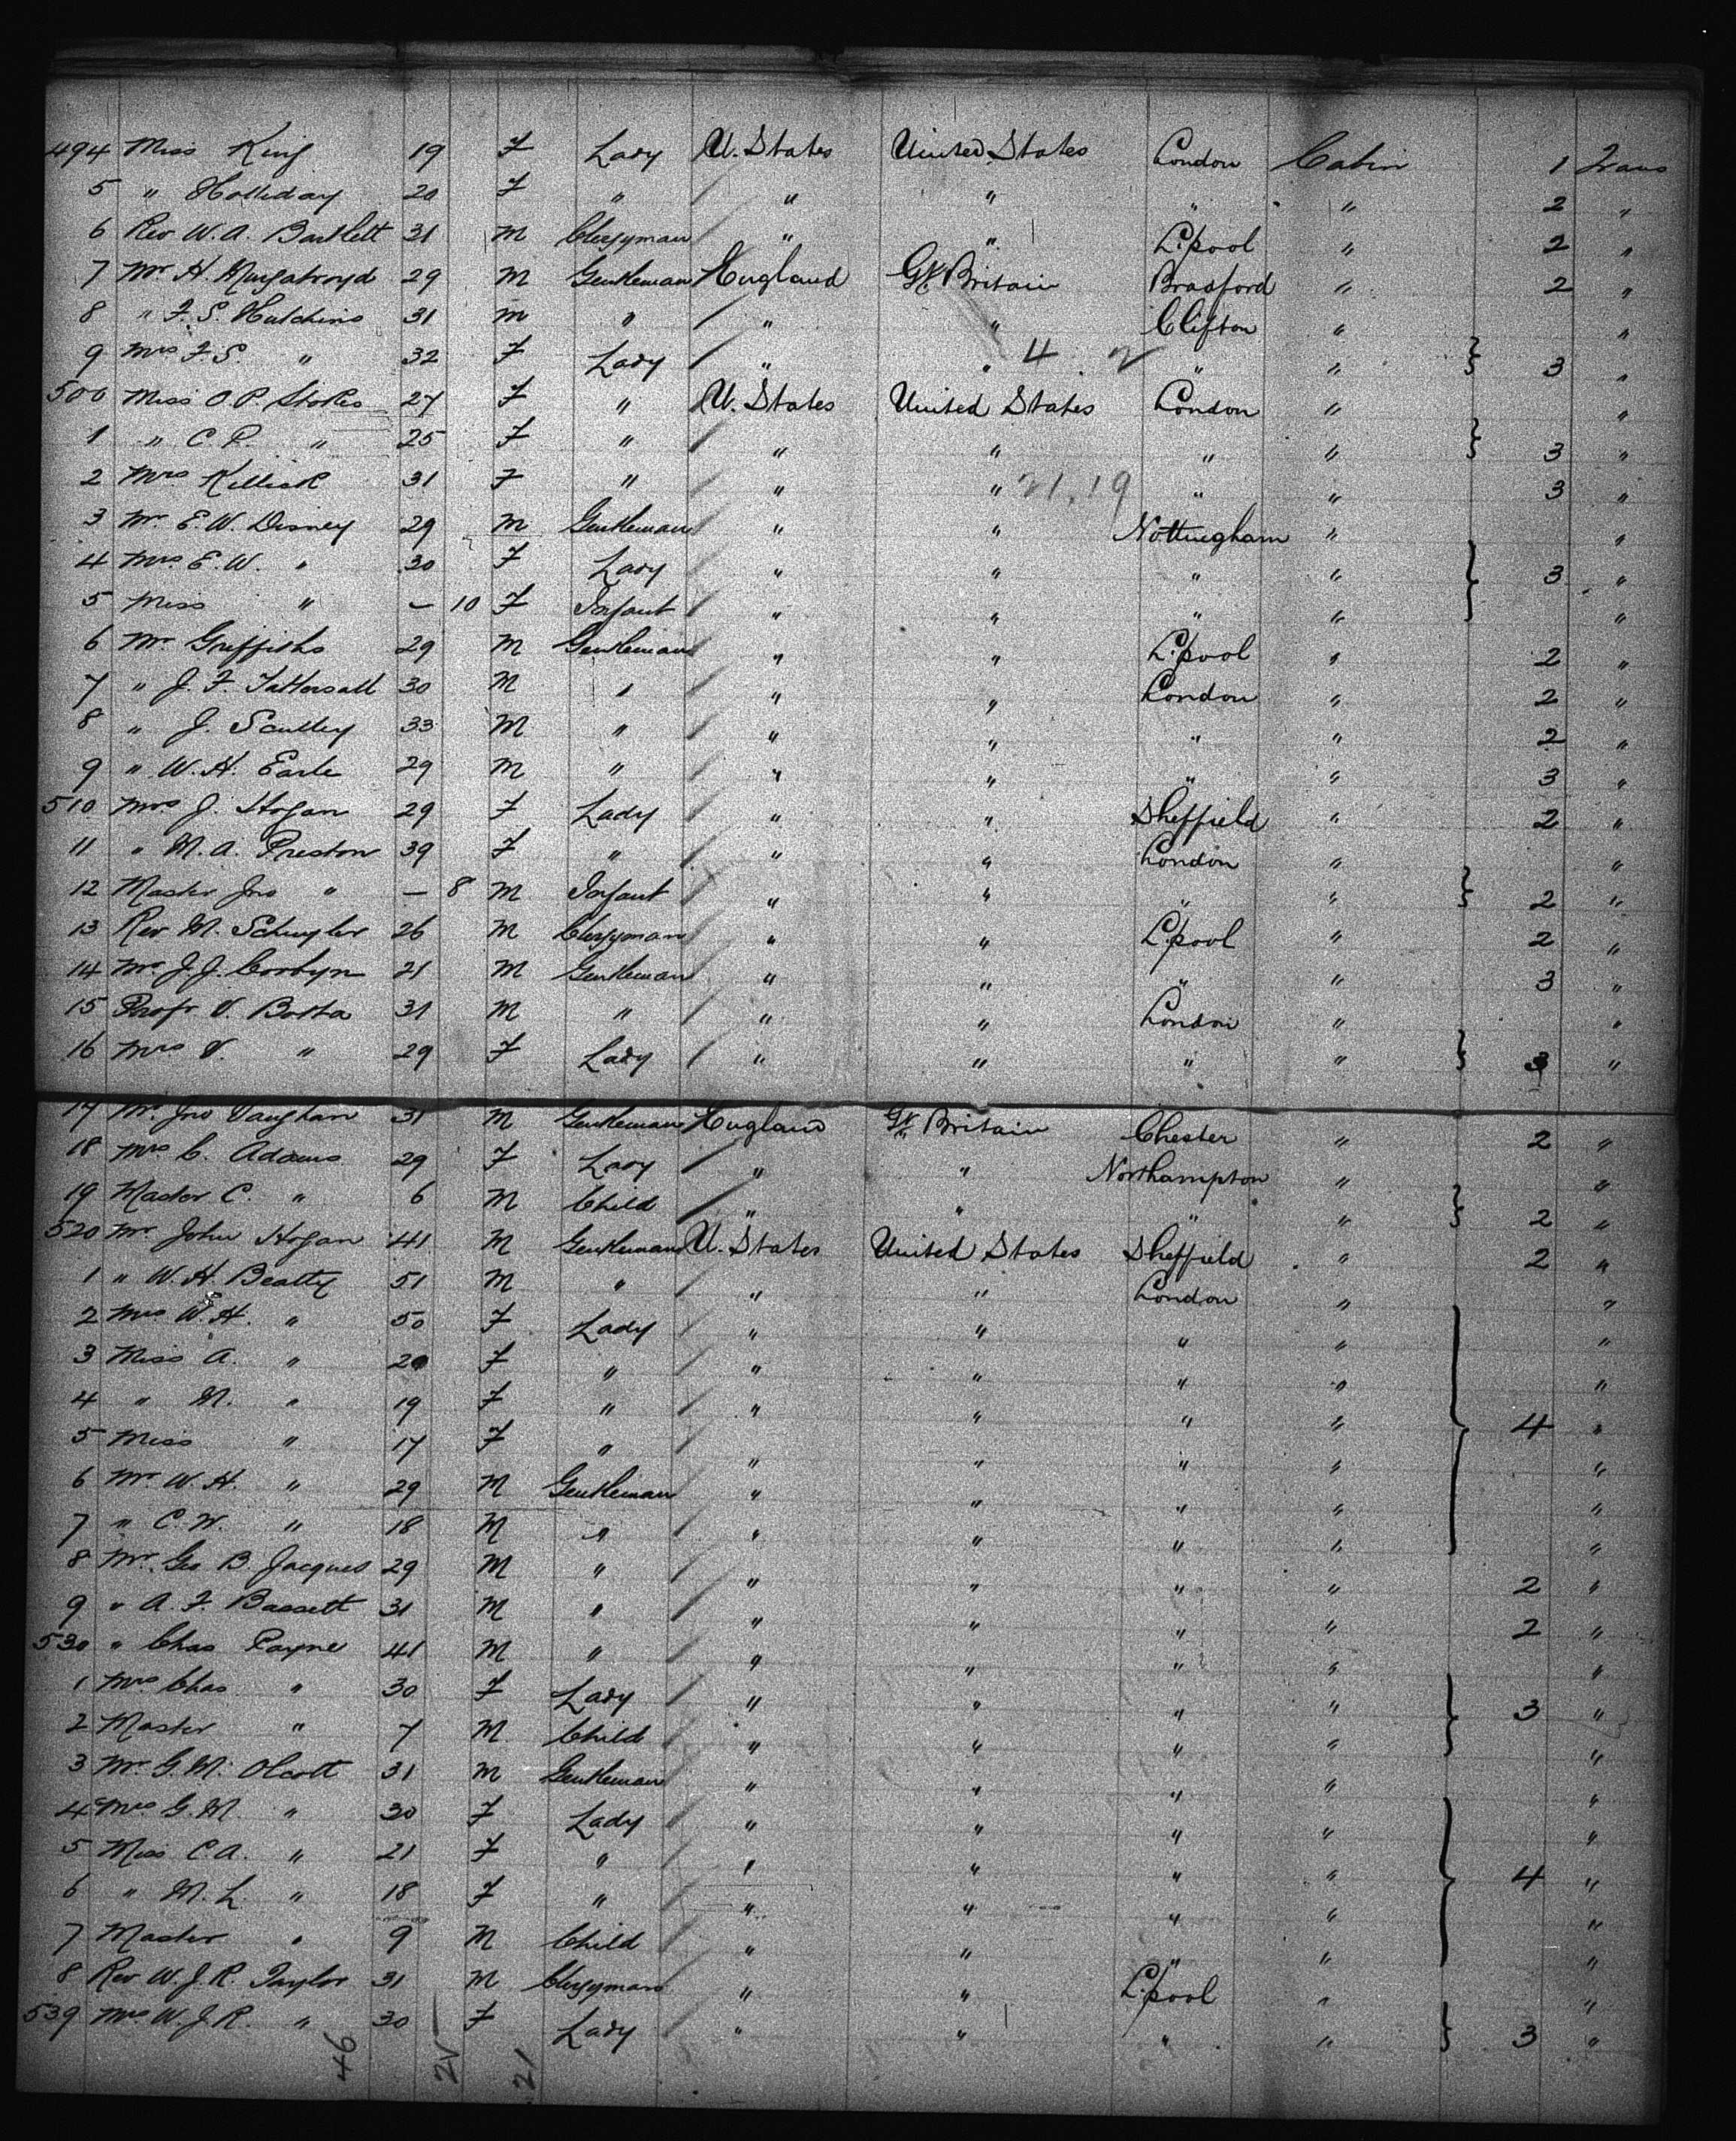 494 Miss King 19 F Lady U. States United States London Cabin 1 Trans
5 " Holliday 20 F " " " " " 2 "
6 Rev W. A. Bartlett 31 M Clergyman " " L.pool " 2 "
7 Mr H. Murgatroyd 29 M Gentleman England Gt. Britain Bradford " 2 "
8 " F. S. Hutchins 31 M " " " Clifton " "
9 Mrs F. S. " 32 F Lady " " 4 2 " " } 3 "
500 Miss O. P. Stokes 27 F " U. States United States London " "
1 " C. P. " 25 F " " " " " } 3 "
2 Mrs Killick 31 F " " " 21.19 " " 3 "
3 Mr. E. W. Disney 29 M Gentleman " " Nottingham " "
4 Mrs. E. W. " 30 F Lady " " " " } 3 "
5 Miss " – 10 F Infant " " " " "
6 Mr Griffiths 29 M Gentleman " " L.pool " 2 "
7 " J. F. Tattersall 30 M " " " London " 2 "
8 " J. Sculley 33 M " " " " " 2 "
9 " W. H. Earle 29 M " " " " " 3 "
510 Mrs J. Hogan 29 F Lady " " Sheffield " 2 "
11 " M. A. Preston 39 F " " " London " "
12 Master Jno " – 8 M Infant " " " " } 2 "
13 Rev M. Schuyler 26 M Clergyman " " L.pool " 2 "
14 Mr J. J. Corbyn 21 M Gentleman " " " " 3 "
15 Profr V. Botta 31 M " " " London " "
16 Mrs V. " 29 F Lady " " " " } 3 "
17 Mr. Jno Vaughan 31 M Gentleman England Gt. Britain Chester " 2 "
18 Mrs C. Adams 29 F Lady " " Northampton " "
19 Master C. " 6 M Child " " " " } 2 "
520 Mr. John Hogan 41 M Gentleman U. States United States Sheffield " 2 "
1 " W. H. Beatty 51 M " " " London " "
2 Mrs W. H. " 50 F Lady " " " " "
3 Miss A. " 20 F " " " " " "
4 " M. " 19 F " " " " " } 4 "
5 Miss " 17 F " " " " " "
6 Mr. W. H. " 29 M Gentleman " " " " "
7 " C. W. " 18 M " " " " " "
8 Mr. Geo B. Jacques 29 M " " " " " 2 "
9 " A. F. Bassett 31 M " " " " " 2 "
530 " Chas Payne 41 M " " " " " "
1 Mrs Chas " 30 F Lady " " " " } 3 "
2 Master " 7 M Child " " " " "
3 Mr. G. M. Olcott 31 M Gentleman " " " " "
4 Mrs G. M. " 30 F Lady " " " " "
5 Miss C. A. " 21 F " " " " " } 4 "
6 " M. L. " 18 F " " " " " "
7 Master " 9 M Child " " " " "
8 Rev W. J. R. Taylor 31 M Clergyman " " L.pool " "
539 Mrs W. J. R. " 30 F Lady " " " " } 3 "
46 21